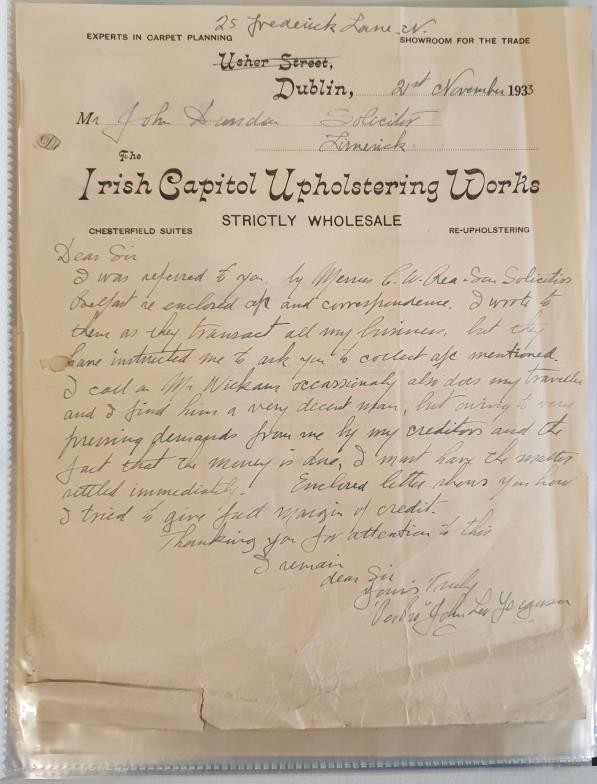 25 Frederick Lane. N.
EXPERTS IN CARPET PLANNING SHOWROOM FOR THE TRADE
Usher Street,
Dublin, 21st November 1933
Mr John Dundon Solicitor
Limerick.
The
Irish Capitol Upholstering Works
STRICTLY WHOLESALE
CHESTERFIELD SUITES RE-UPHOLSTERING
Dear Sir
I was referred to you, by Messrs C. W. Rea & Son Solicitors
Belfast re enclosed a/c and correspondence. I wrote to
them as they transact all my business, but they
have instructed me to ask you to collect a/c mentioned.
I call on Mr occassionaly also does my traveller
and I find him a very decent man, but owing to very
pressing demands from me by my creditors and the
fact that the money is due, I must have the matter
settled immediately. Enclosed letter shows you how
I tried to give full margin of credit.
Thanking you for attention to this
I remain
dear Sir
yours Truly
John Leo Ferguson